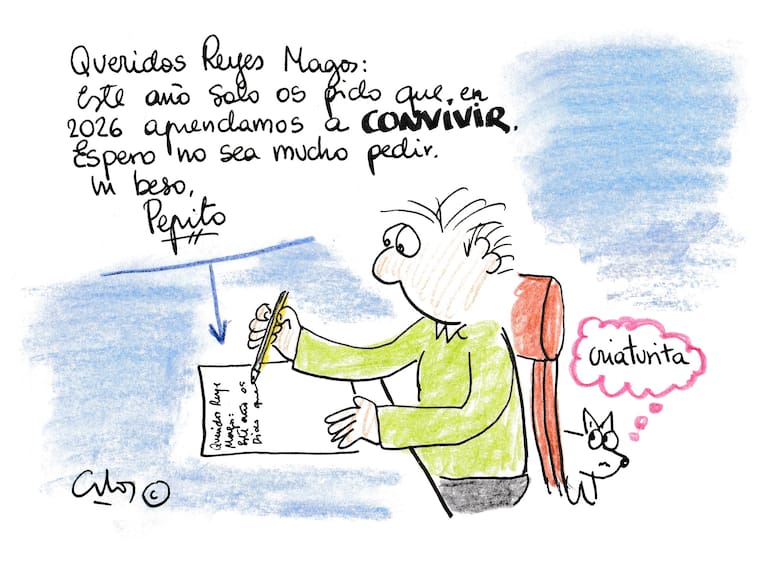 Queridos Reyes Magos:
Este año solo os pido que, en
2026 aprendamos a CONVIVIR.
Espero no sea mucho pedir.
Un beso,
Pepito
criaturita
Querido Reye
Mago:
Este año os
Pido que
©